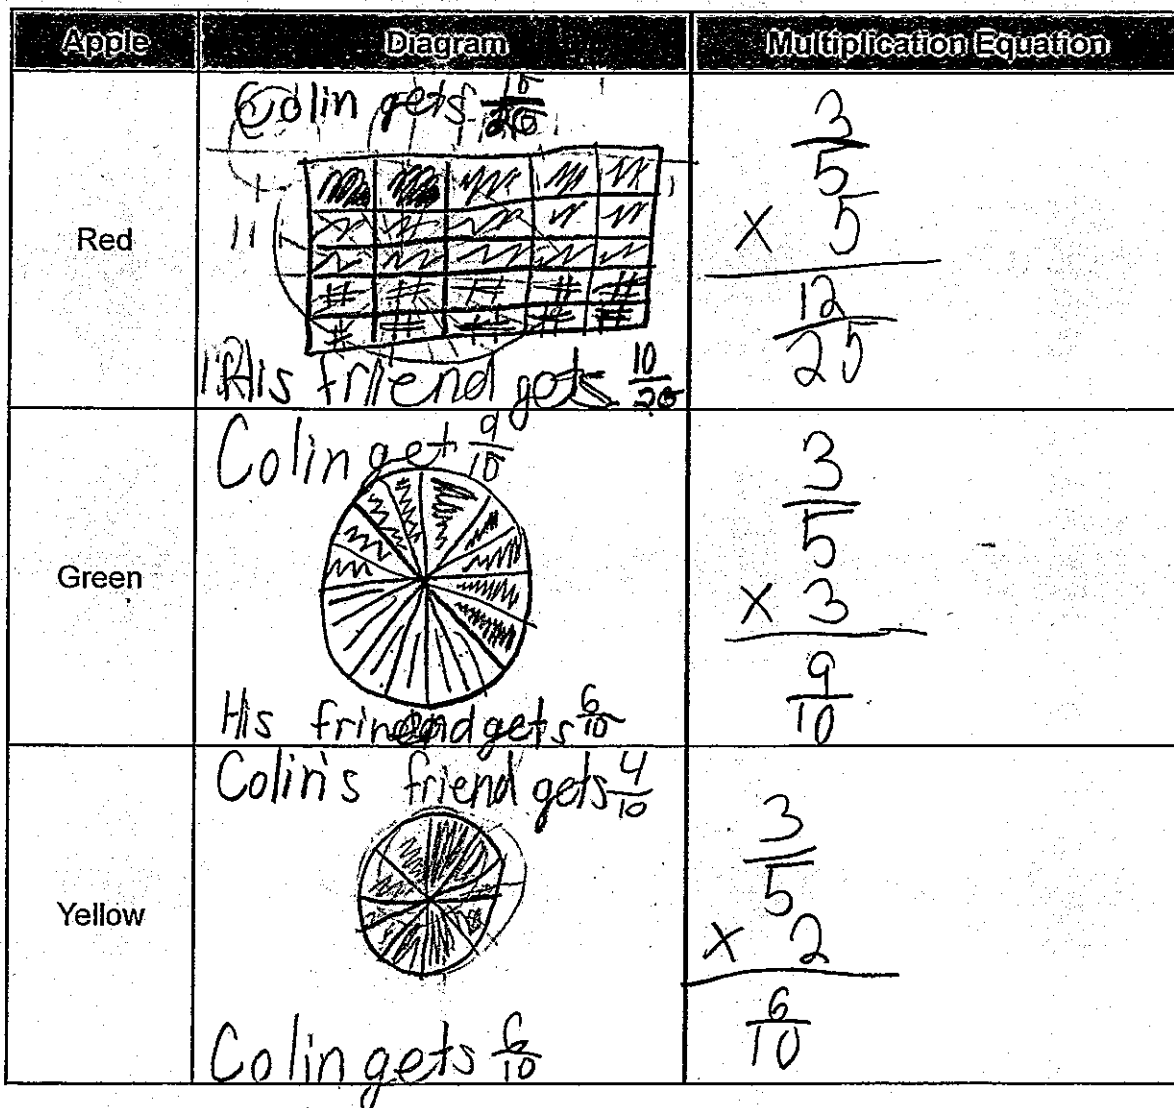 Apple Diagram Multiplication Equation
Red
Colin gets
His friend gets 10/20
3/5
× 5
12/25
Green
Colin get 9/10
His frinend gets 6/10
3/5
× 3
9/10
Yellow
Colin's friend gets 4/10
Colin gets 6/10
3/5
× 2
6/10